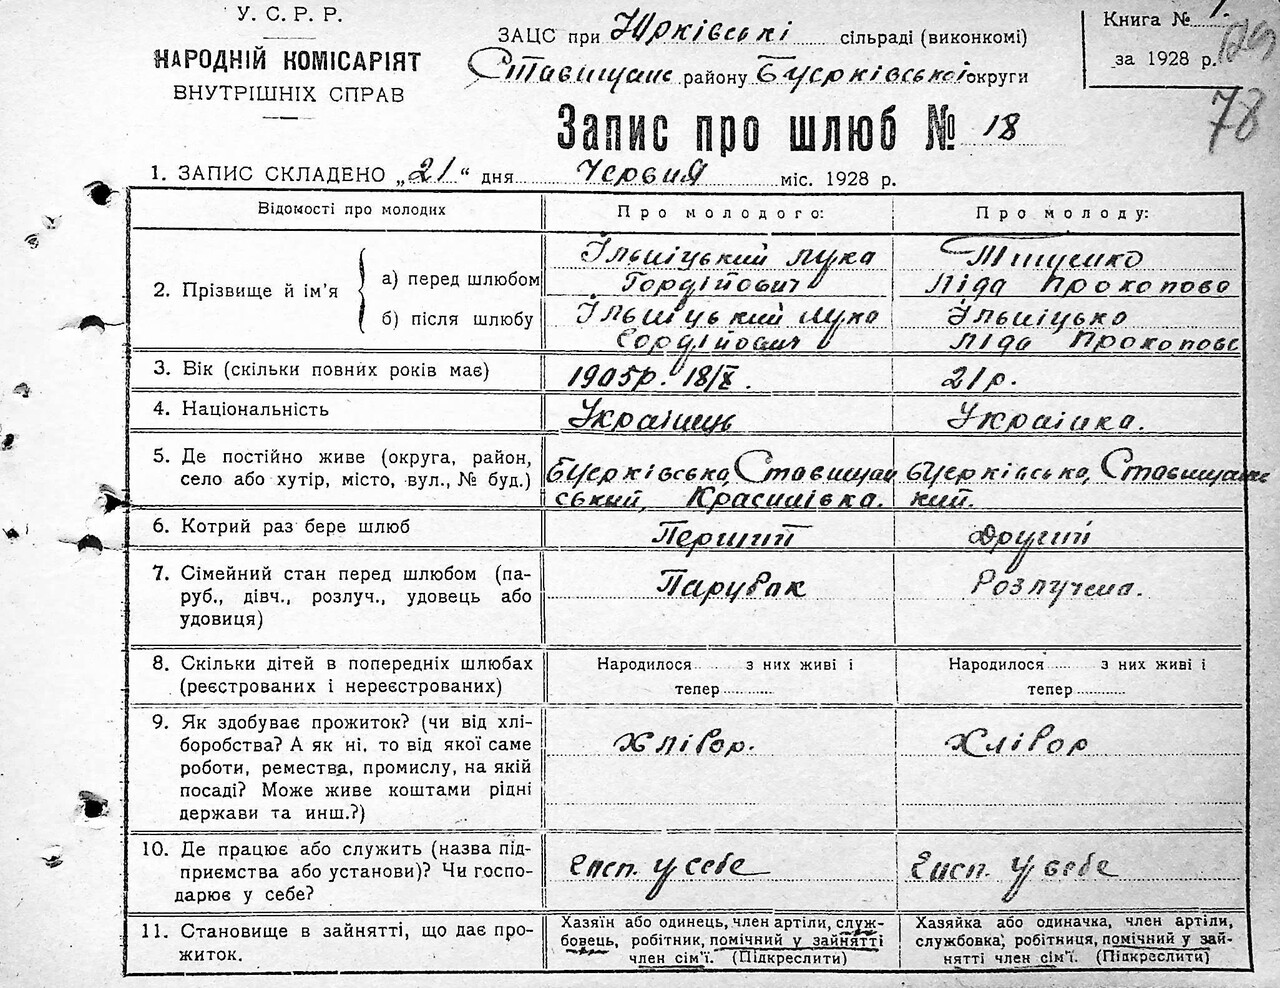 У. С. Р. Р.
НАРОДНІЙ КОМІСАРІЯТ
ВНУТРІШНІХ СПРАВ
ЗАЦС при Юрківські сільраді (виконкомі)
Ставищанс району Білоцерківської округи
Книга № 1.
за 1928 р.
129
78
Запис про шлюб № 18
1. ЗАПИС СКЛАДЕНО „21“ дня Червня міс. 1928 р.
Відомості про молодих
Про молодого:
Про молоду:
2. Прізвище й ім’я
а) перед шлюбом
Ільніцький Лука
Гордійович
Тищенко
Ліда Прокопово
б) після шлюбу
Ільніцький Лука
Гордійович
Ільніцько
Ліда Прокопово
3. Вік (скільки повних років має)
1905р. 18/X.
21 р.
4. Національність
Українць
Українка.
5. Де постійно живе (округа, район,
село або хутір, місто, вул., № буд.)
Ставищан
ський, Красилівка.
Ставищанс
кий.
6. Котрий раз бере шлюб
Перший
Другий
7. Сімейний стан перед шлюбом (па-
руб., дівч., розлуч., удовець або
удовиця)
Парубок
Розлучена.
8. Скільки дітей в попередніх шлюбах
(реєстрованих і нереєстрованих)
Народилося з них живі і
тепер
Народилося з них живі і
тепер
9. Як здобуває прожиток? (чи від хлі-
боробства? А як ні, то від якої саме
роботи, ремества, промислу, на якій
посаді? Може живе коштами рідні
держави та инш.?)
Хлібор.
Хлібор
10. Де працює або служить (назва під-
приємства або установи)? Чи госпо-
дарює у себе?
у себе
у себе
11. Становище в зайнятті, що дає про-
житок.
Хазяїн або одинець, член артіли, служ-
бовець, робітник, помічний у зайнятті
член сім’ї. (Підкреслити)
Хазяйка або одиначка, член артіли,
службовка, робітниця, помічний у зай-
нятті член сім’ї. (Підкреслити)